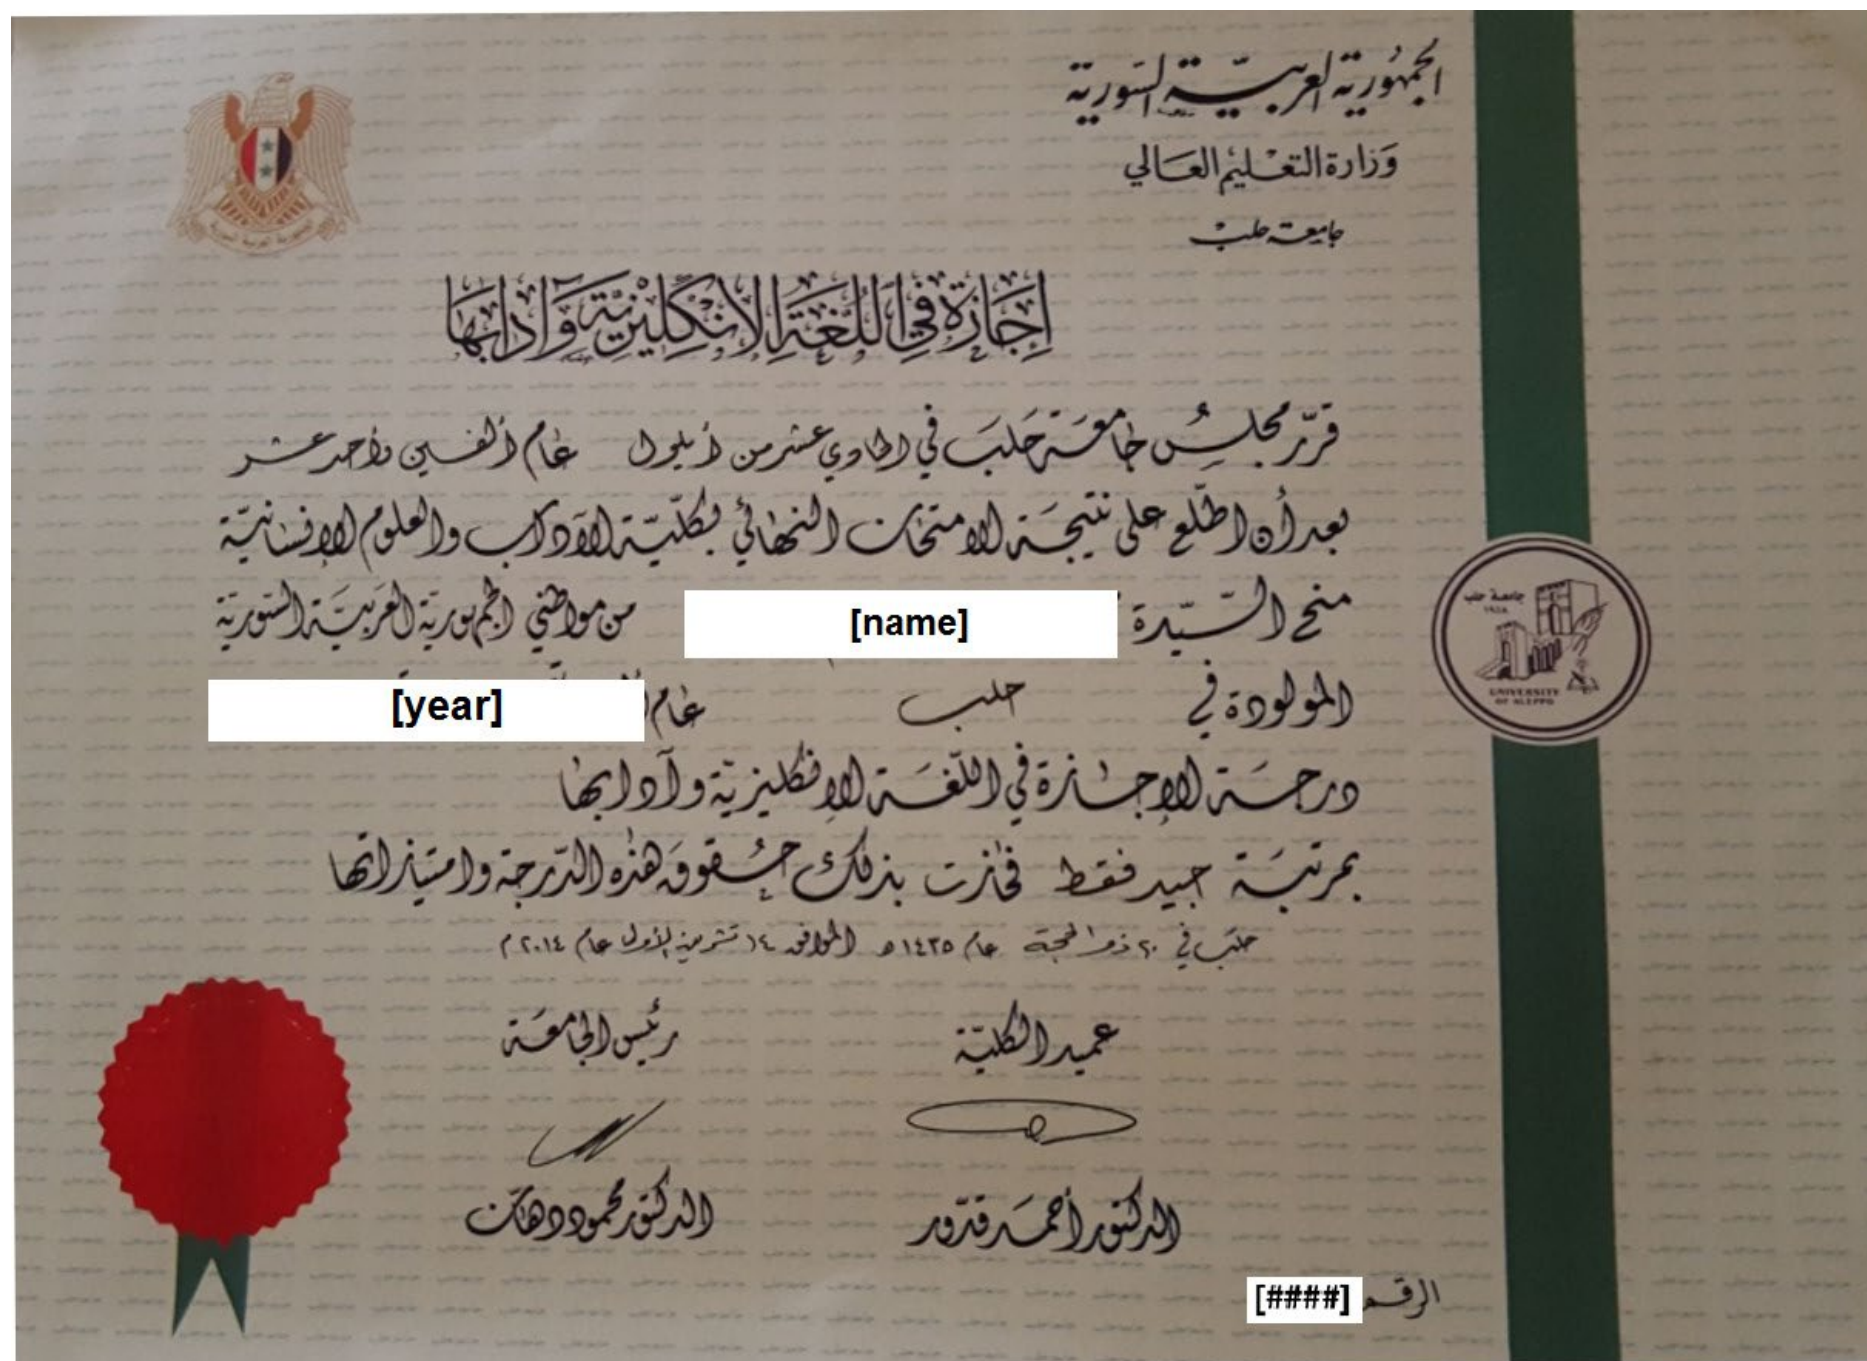 الجمهورية العربية السورية
وزارة التعليم العالي
جامعة حلب
إجازة في اللغة الإنكليزية وآدابها
قرر مجلس جامعة حلب في الحادي عشر من أيلول عام ألفين وأحد عشر
بعد أن اطلع على نتيجة الامتحان النهائي بكلية الآداب والعلوم الإنسانية
منح السيدة [name] من مواطني الجمهورية العربية السورية
المولودة في حلب عام [year]
درجة الإجازة في اللغة الإنكليزية وآدابها
بمرتبة جيد فقط فحازت بذلك حقوق هذه الدرجة وامتيازاتها
حلب في ٢٠ ذو الحجة عام ١٤٣٥ هـ الموافق ١٤ تشرين الأول عام ٢٠١٤ م
عميد الكلية رئيس الجامعة
الدكتور أحمد قدور الدكتور محمود دهان
الرقم [####]
جامعة حلب
١٩٥٨
UNIVERSITY
OF ALEPPO
الجمهورية العربية السورية